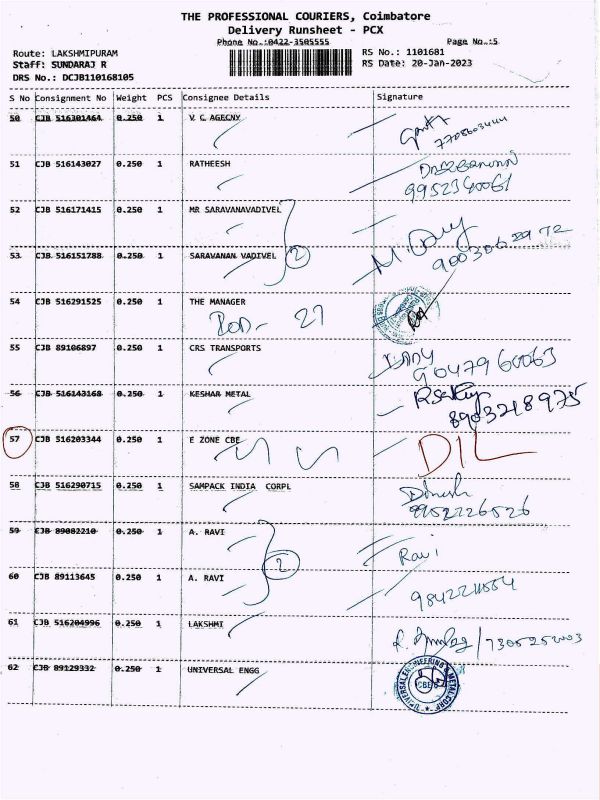 THE PROFESSIONAL COURIERS, Coimbatore
Delivery Runsheet - PCX
Phone No.:0422-3505555
Page No.:5
Route: LAKSHMIPURAM
RS No.: 1101681
Staff: SUNDARAJ R
RS Date: 20-Jan-2023
DRS No.: DCJB110168105
S No Consignment No Weight PCS Consignee Details Signature
50 CJB 516301464 0.250 1 V. C. AGECNY
7708603444
51 CJB 516143027 0.250 1 RATHEESH
9952340061
52 CJB 516171415 0.250 1 MR SARAVANAVADIVEL
53 CJB 516151788 0.250 1 SARAVANAN VADIVEL 2
54 CJB 516291525 0.250 1 THE MANAGER
27
55 CJB 89106897 0.250 1 CRS TRANSPORTS
9047960063
56 CJB 516143168 0.250 1 KESHAR METAL
8903218975
57 CJB 516203344 0.250 1 E ZONE CBE
DIL
58 CJB 516290715 0.250 1 SAMPACK INDIA CORPL
Dinesh
9952226526
59 CJB 89082210 0.250 1 A. RAVI
2 Ravi
60 CJB 89113645 0.250 1 A. RAVI
61 CJB 516204996 0.250 1 LAKSHMI
62 CJB 89129332 0.250 1 UNIVERSAL ENGG
UNIVERSAL ENGINEERING & METAL CORP
CBE